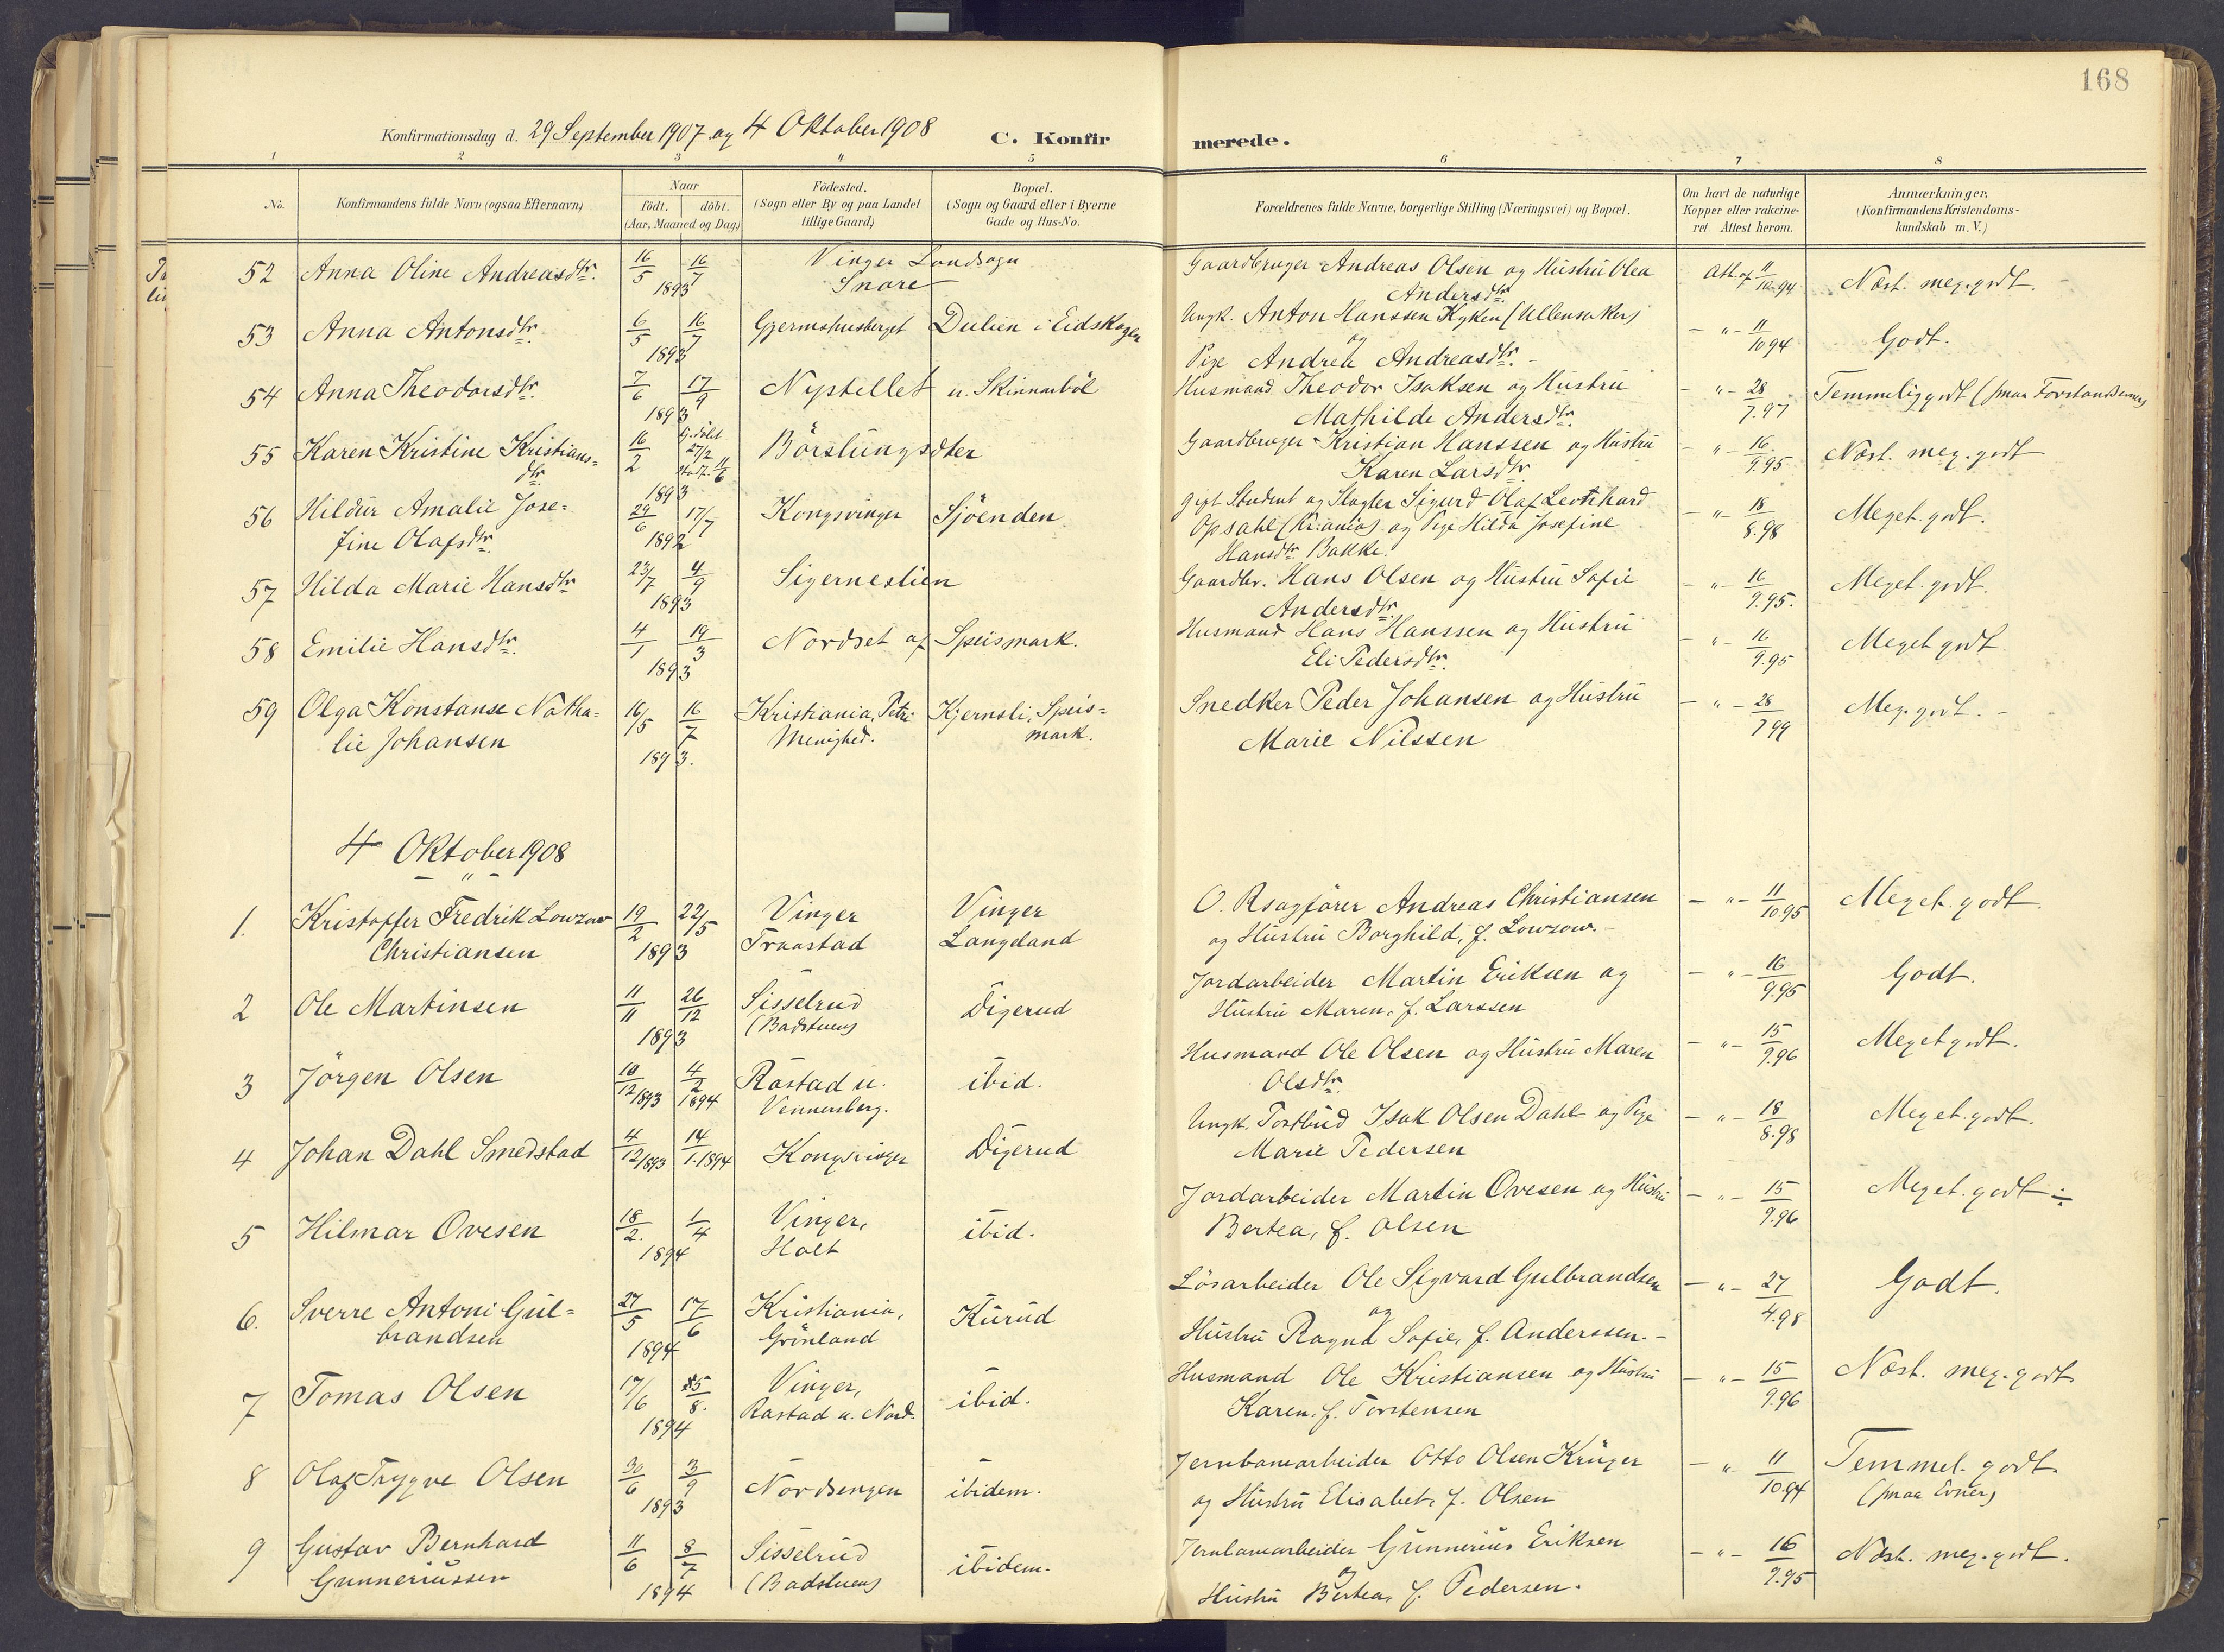 168
Konfirmationsdag d. 29 September 1907 og 4 Oktober 1908
C. Konfir
merede.
1 2 3 4 5 6 7 8
No.
Konfirmandens fulde Navn (ogsaa Efternavn)
Naar
födt. döbt.
(Aar, Maaned og Dag)
Födested.
(Sogn eller By og paa Landet
tillige Gaard)
Bopæl.
(Sogn og Gaard eller i Byerne
Gade og Hus-No.
Forældrenes fulde Navne, borgerlige Stilling (Næringsvei) og Bopæl.
Om havt de naturlige
Kopper eller vakcine-
ret. Attest herom.
Anmærkninger.
(Konfirmandens Kristendoms-
kundskab m. V.)
52 Anna Oline Andreasdtr. 16/5 16/7 1893 Vinger Landsogn
Snare
Gaardbruger Andreas Olsen og Hustru Olea
Andersdtr.
Att. af 11/10.94 Næst. meg. godt.
53 Anna Antonsdtr. 6/5 16/7 1893 Gjermshusberget Dulien i Eidskogen
Ungk. Anton Hanssen Kyken (Ullensaker)
og
Pige Andrea Andreasdtr. -
- " - 11/10 94 Godt.
54 Anna Theodorsdtr. 7/6 17/9 1893 Nystellet u. Skinnarböl
Husmand Theodor Isaksen og Hustru
Mathilde Andersdtr.
- " - 28/7.97 Temmelig godt (smaa Forstandsevner)
55 Karen Kristine Kristians=
dtr. 16/2 hj. döbt 27/2 11/6 1893 Börslungsæter
Gaardbruger Kristian Hanssen og Hustru
Karen Larsdtr.
- " - 16/9.95 Næst. meg. godt
56 Hildur Amalie Jose=
fine Olafsdtr. 29/6 17/7 1892 Kongsvinger Sjöenden
gigt Student og Slagter Sigurd Olaf Leonhard
Opsahl (Kr.ania) og Pige Hilda Josefine
Hansdtr. Bakke.
- " - 18/8.98 Meget godt.
57 Hilda Marie Hansdtr 23/7 4/9 1893 Sigerneslien
Gaardbr. Hans Olsen og Hustru Sofie
Andersdtr.
- " - 16/9.95. Meget godt.
58 Emilie Hansdtr. 4/1 19/3 1893 Nordset af Speismark.
Husmand Hans Hanssen og Hustru
Eli Pedersdtr.
- " - 16/9.95 Meget godt
59 Olga Konstanse Natha=
lie Johansen 16/5 16/7 1893. Kristiania, Petri
Menighed.
Kjernsli, Speis=
mark.
Snedker Peder Johansen og Hustru
Marie Nilssen
- " - 28/7 99 Meg. godt. -
4 Oktober 1908
- " -
1. Kristoffer Fredrik Lowzow
Christiansen 19/2 22/5 1893 Vinger
Traastad
Vinger
Langeland
O. Rsagförer Andreas Christiansen
og Hustru Borghild, f. Lowzow. -
- " - 11/10.95 Meget godt.
2 Ole Martinsen 11/11 26/12 1893 Sisselrud
(Badstuen)
Digerud
Jordarbeider Martin Eriksen og
Hustru Maren, f. Larssen
- " - 16/9.95 Godt.
3 Jörgen Olsen 10/12 1893 4/2 1894 Rastad u.
Vennersberg.
ibid.
Husmand Ole Olsen og Hustru Maren
Olsdtr.
- " - 15/9.96 Meget godt.
4 Johan Dahl Smedstad 4/12 1893 14/1.1894 Kongsvinger Digerud
Ungk. Postbud Isak Olsen Dahl og Pige
Marie Pedersen
- " - 18/8.98 Meget godt.
5 Hilmar Ovesen 18/2. 1/4 1894 Vinger,
Holt
ibid.
Jordarbeider Martin Ovesen og Hustru
Bertea, f. Olsen
- " - 15/9.96 Meget godt ÷
6. Sverre Antoni Gul=
brandsen 27/5 17/6 1894 Kristiania,
Grönland
Kurud
Lösarbeider Ole Sigvard Gulbrandsen
og
Hustru Ragna Sofie, f. Anderssen. -
- " - 27/4.98 Godt.
7 Tomas Olsen 17/6 5/8. 1894 Vinger,
Rastad u. Nord.
ibid.
Husmand Ole Kristiansen og Hustru
Karen, f. Torstensen
- " - 15/9.96 Næst. meg. godt
8 Olaf Trygve Olsen 30/6 3/9 1893 Nordsengen ibidem.
Jernbanearbeider Otto Olsen Krüger
og Hustru Elisabet, f. Olsen
- " - 11/10.94 Temmel. godt.
(smaa Evner)
9 Gustav Bernhard
Gunneriussen 11/6 8/7 1894 Sisselrud
(Badstuen)
ibidem.
Jernbanearbeider Gunnerius Eriksen
og
Hustru Bertea, f. Pedersen.
- " - 16/9.95 Næst. meg. godt.